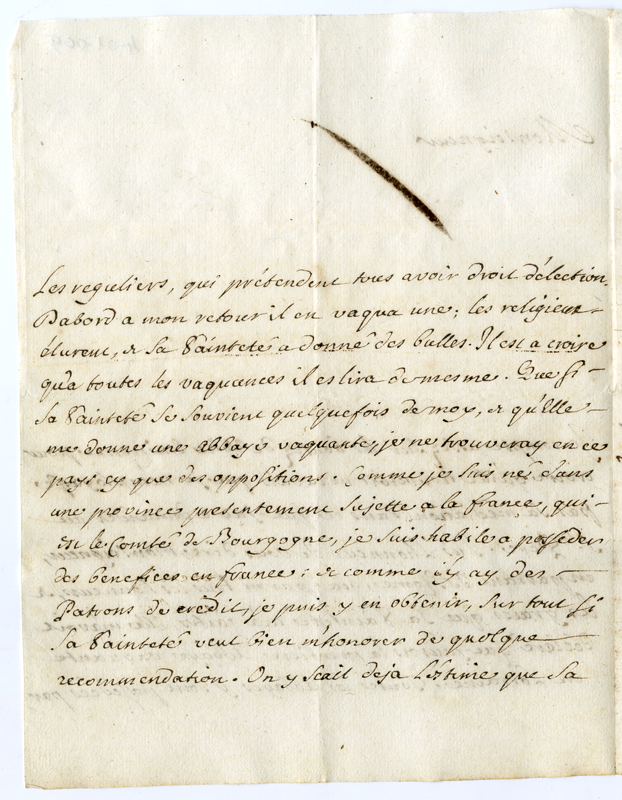 Les reguliers, qui prétendent tous avoir droit d'élection.
Dabord a mon retour il en vaqua une; les religieux
élurent, & sa Sainteté a donné des bulles. Il est a croire
qu'a toutes les vaquances il eslira de mesme. Que si
sa Sainteté se souvient quelquefois de moy, & qu'Elle
me donne une abbaye vaquante, je ne trouveray en ce
pays cy que des oppositions. Comme je suis né dans
une province presentement sujette a la france, qui
est le Comté de Bourgogne, je suis habile a posseder
des benefices en france: & comme i'y ay des
Patrons de crédit, je puis y en obtenir, sur tout si
sa Sainteté veut bien m'honorer de quelque
recommendation. On y scait deja L'estime que sa